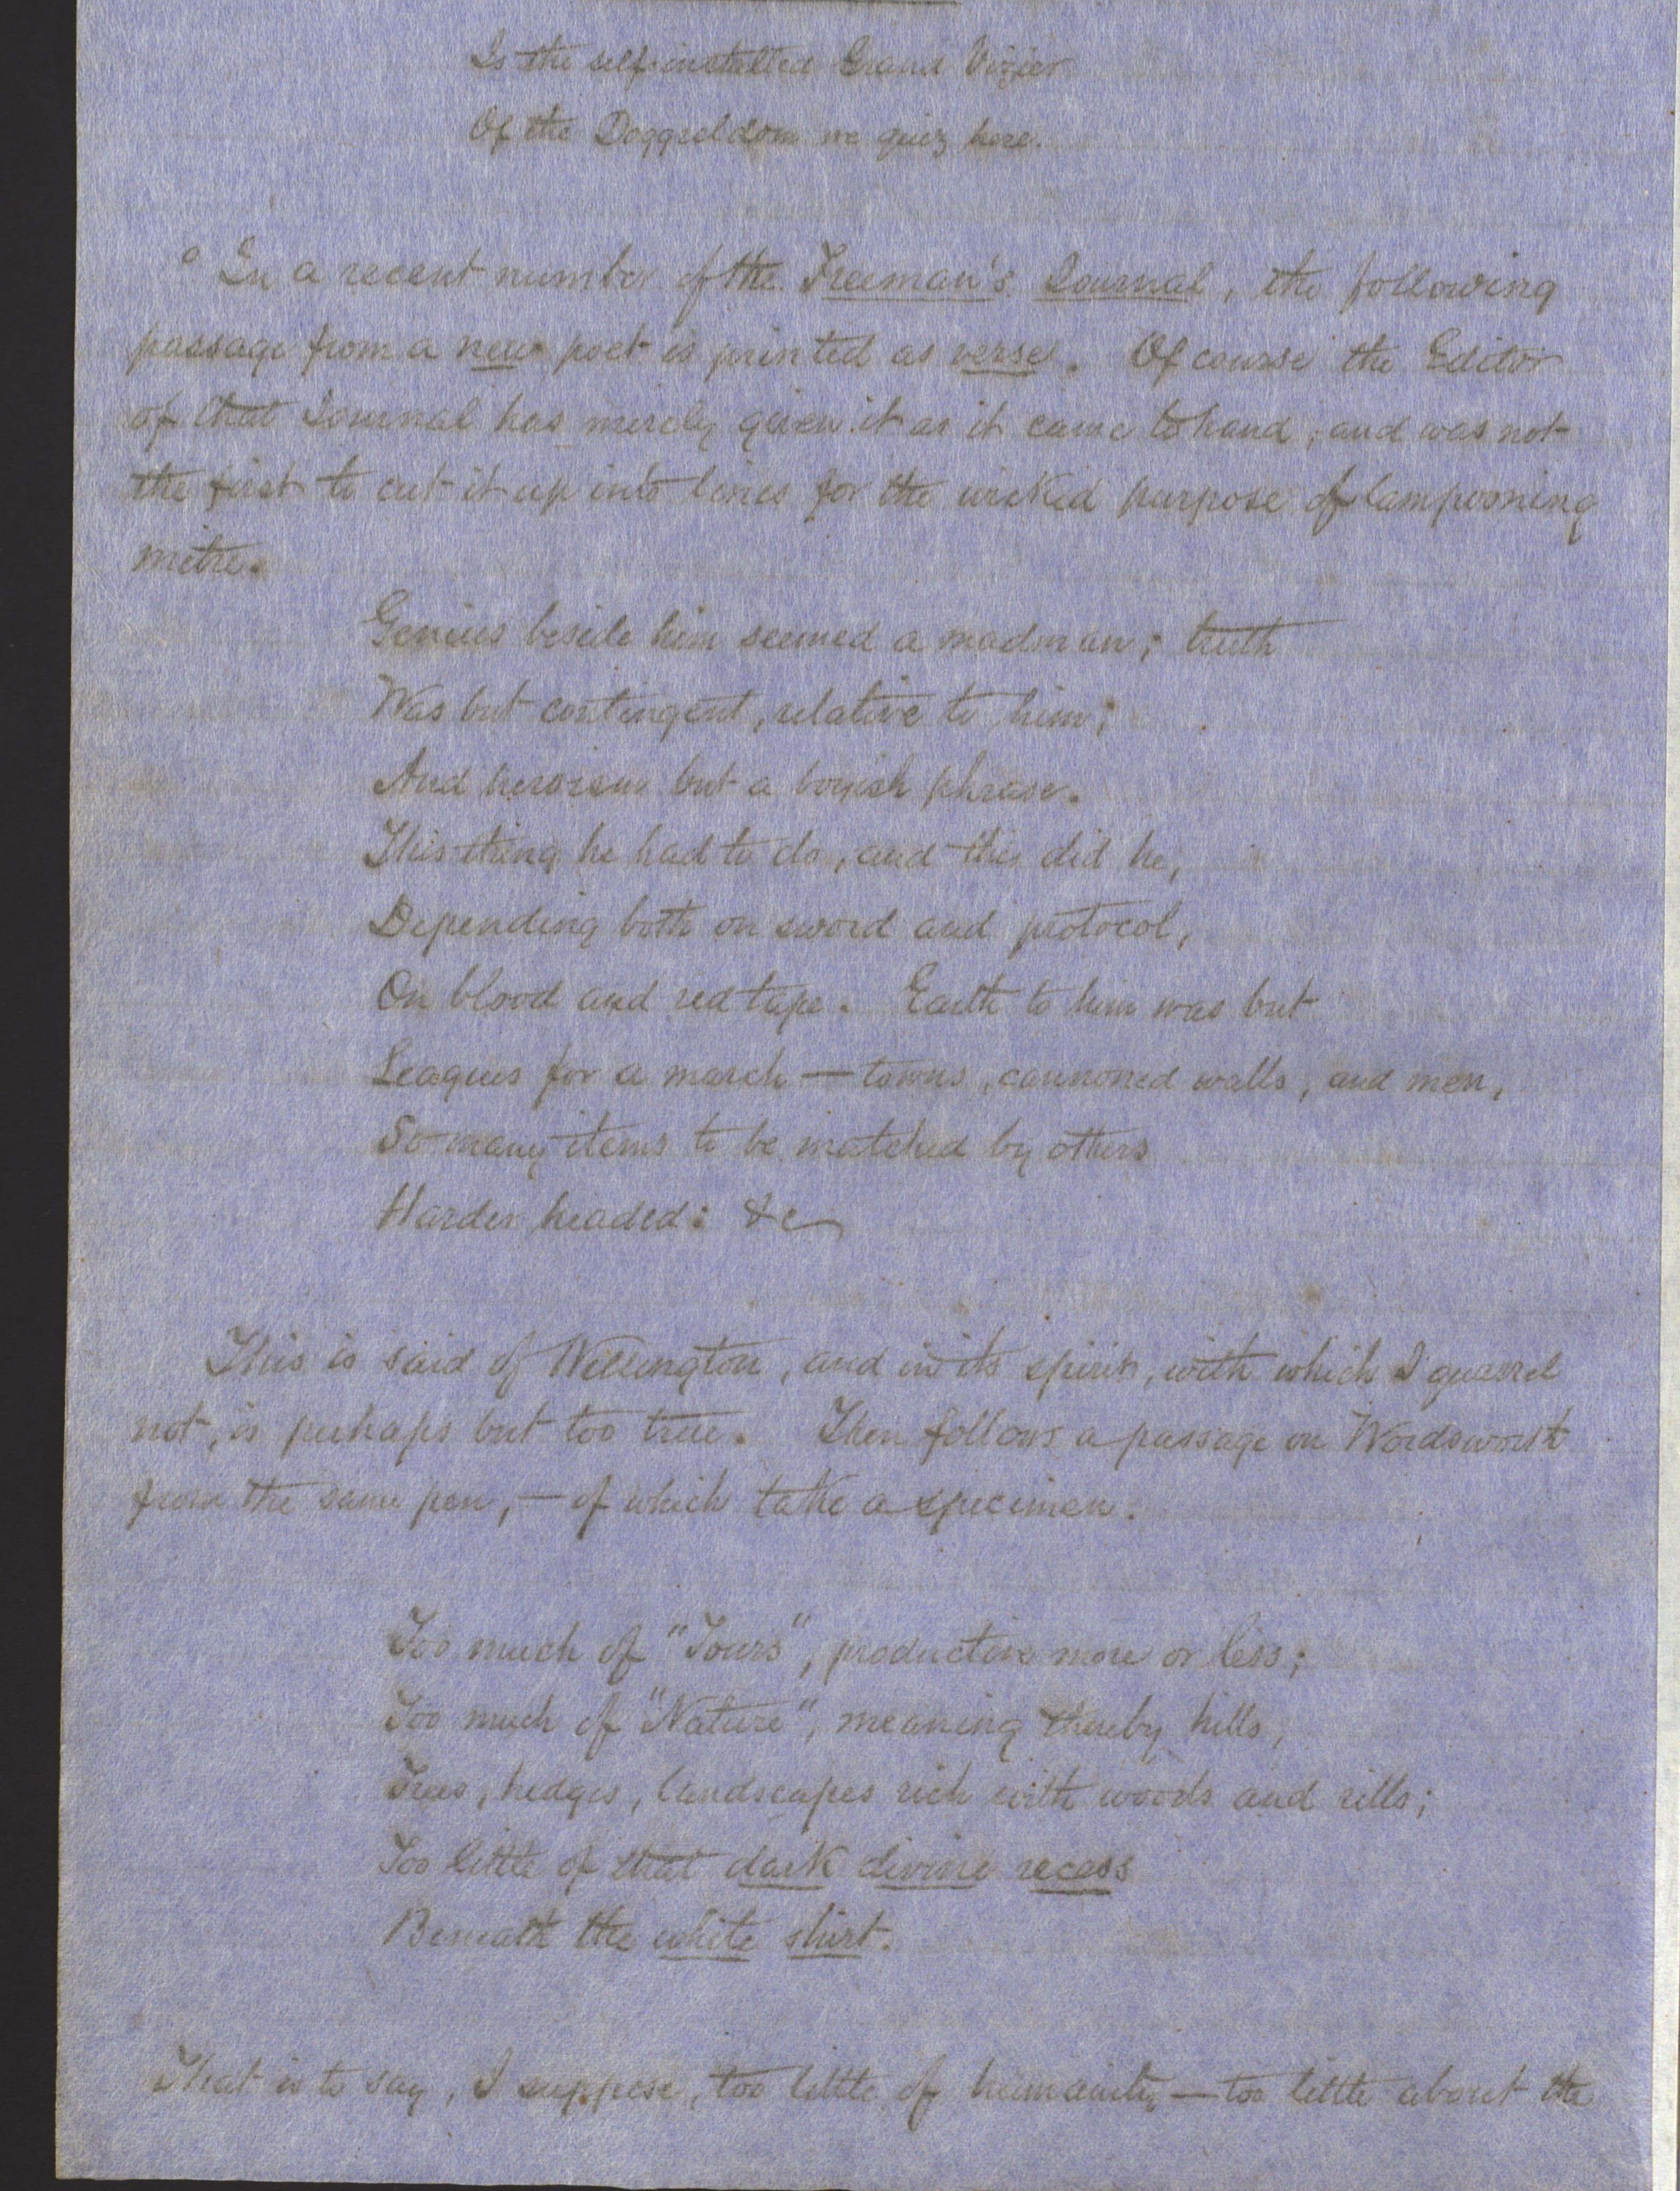 Is the self-installed Grand Vizier
Of the Doggreldom we quiz here.
° In a recent number of the Freeman's Journal, the following
passage from a new poet is printed as verse. Of course the Editor
of that Journal has merely given it as it came to hand, and was not
the first to cut it up into lines for the wicked purpose of lampooning
metre.
Genius beside him seemed a madman; truth
Was but contingent, relative to him;
And heroism but a boyish phrase.
This thing he had to do, and this did he,
Depending both on sword and protocol,
On blood and red tape. Earth to him was but
Leagues for a march — towns, cannoned walls, and men,
So many items to be matched by others
Harder headed: &c
This is said of Wellington, and in its spirit, with which I quarrel
not, is perhaps but too true. Then follows a passage on Wordsworth
from the same pen, — of which take a specimen.
Too much of "Tours", productive more or less;
Too much of "Nature", meaning thereby hills,
Trees, hedges, landscapes rich with woods and rills;
Too little of that dark divine recess
Beneath the white shirt.
That is to say, I suppose, too little of humanity — too little about the